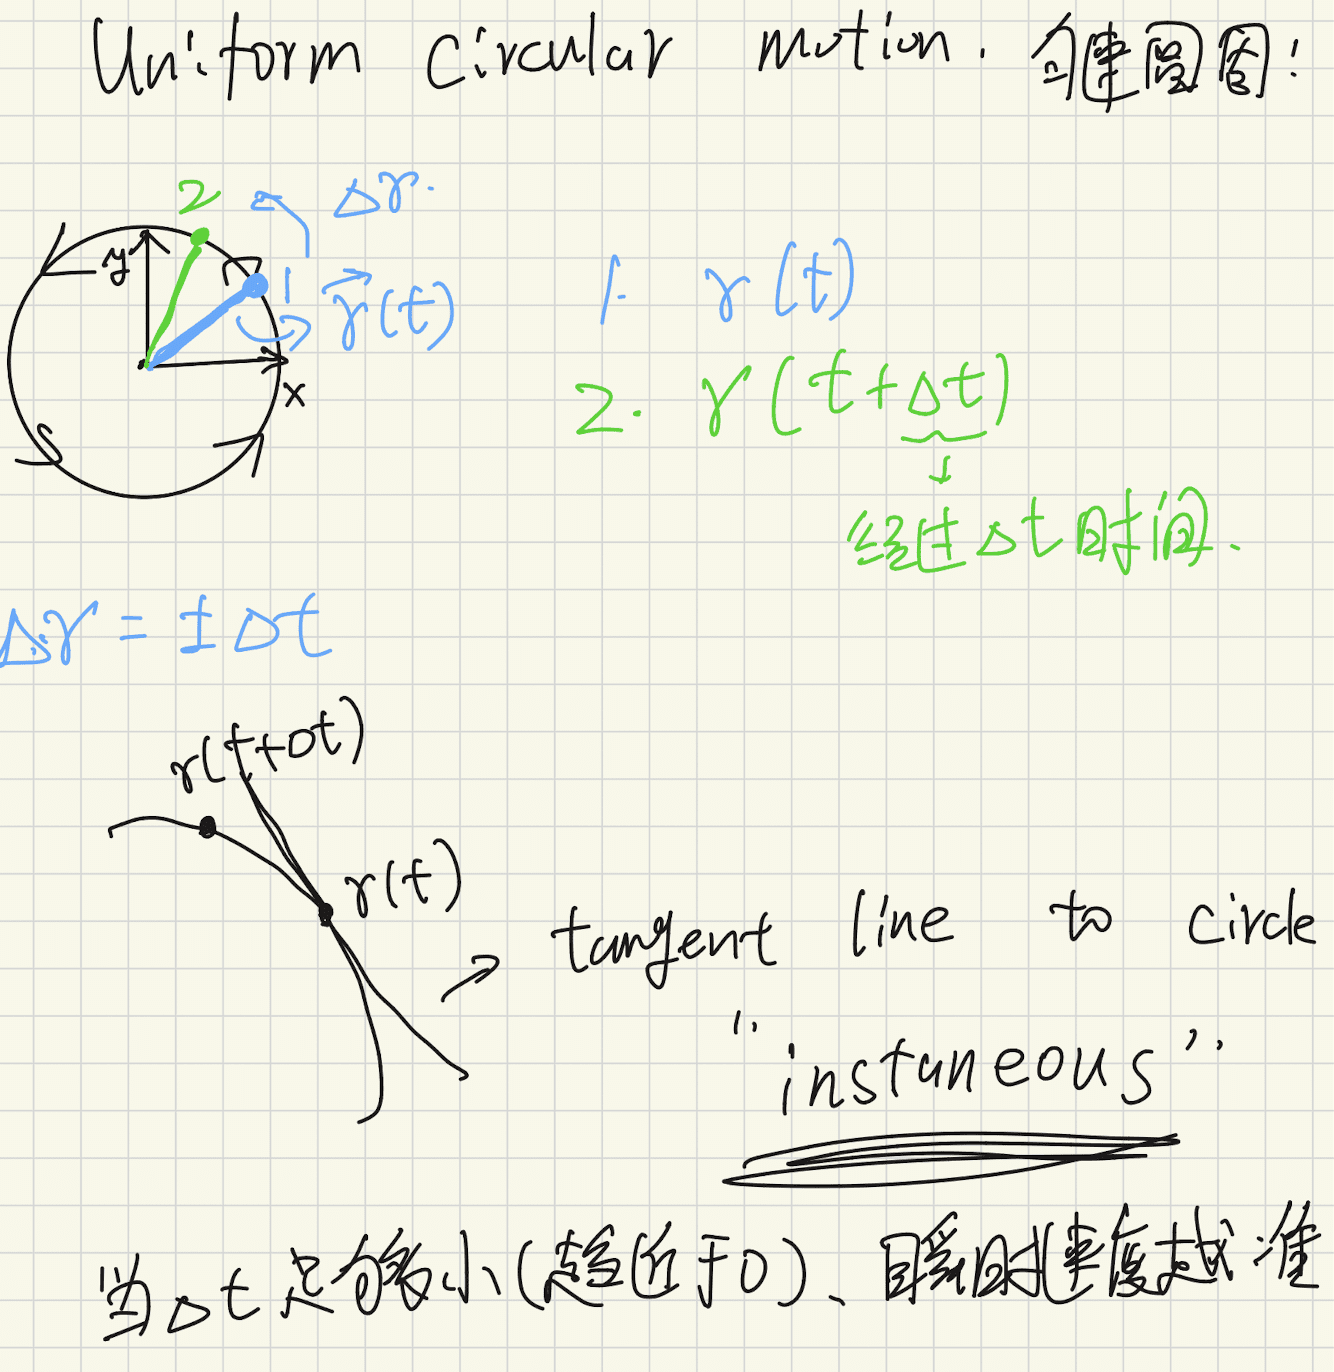 Uniform Circular motion. 匀速圆周!
2
Δr.
y
1
r⃗(t)
x
1. r(t)
2. r(t+Δt)
↓
经过Δt时间.
Δr = ± Δt
r(t+Δt)
r(t)
→ tangent line to circle
"instaneous"
当Δt足够小(趋近于0)、瞬时速度越准